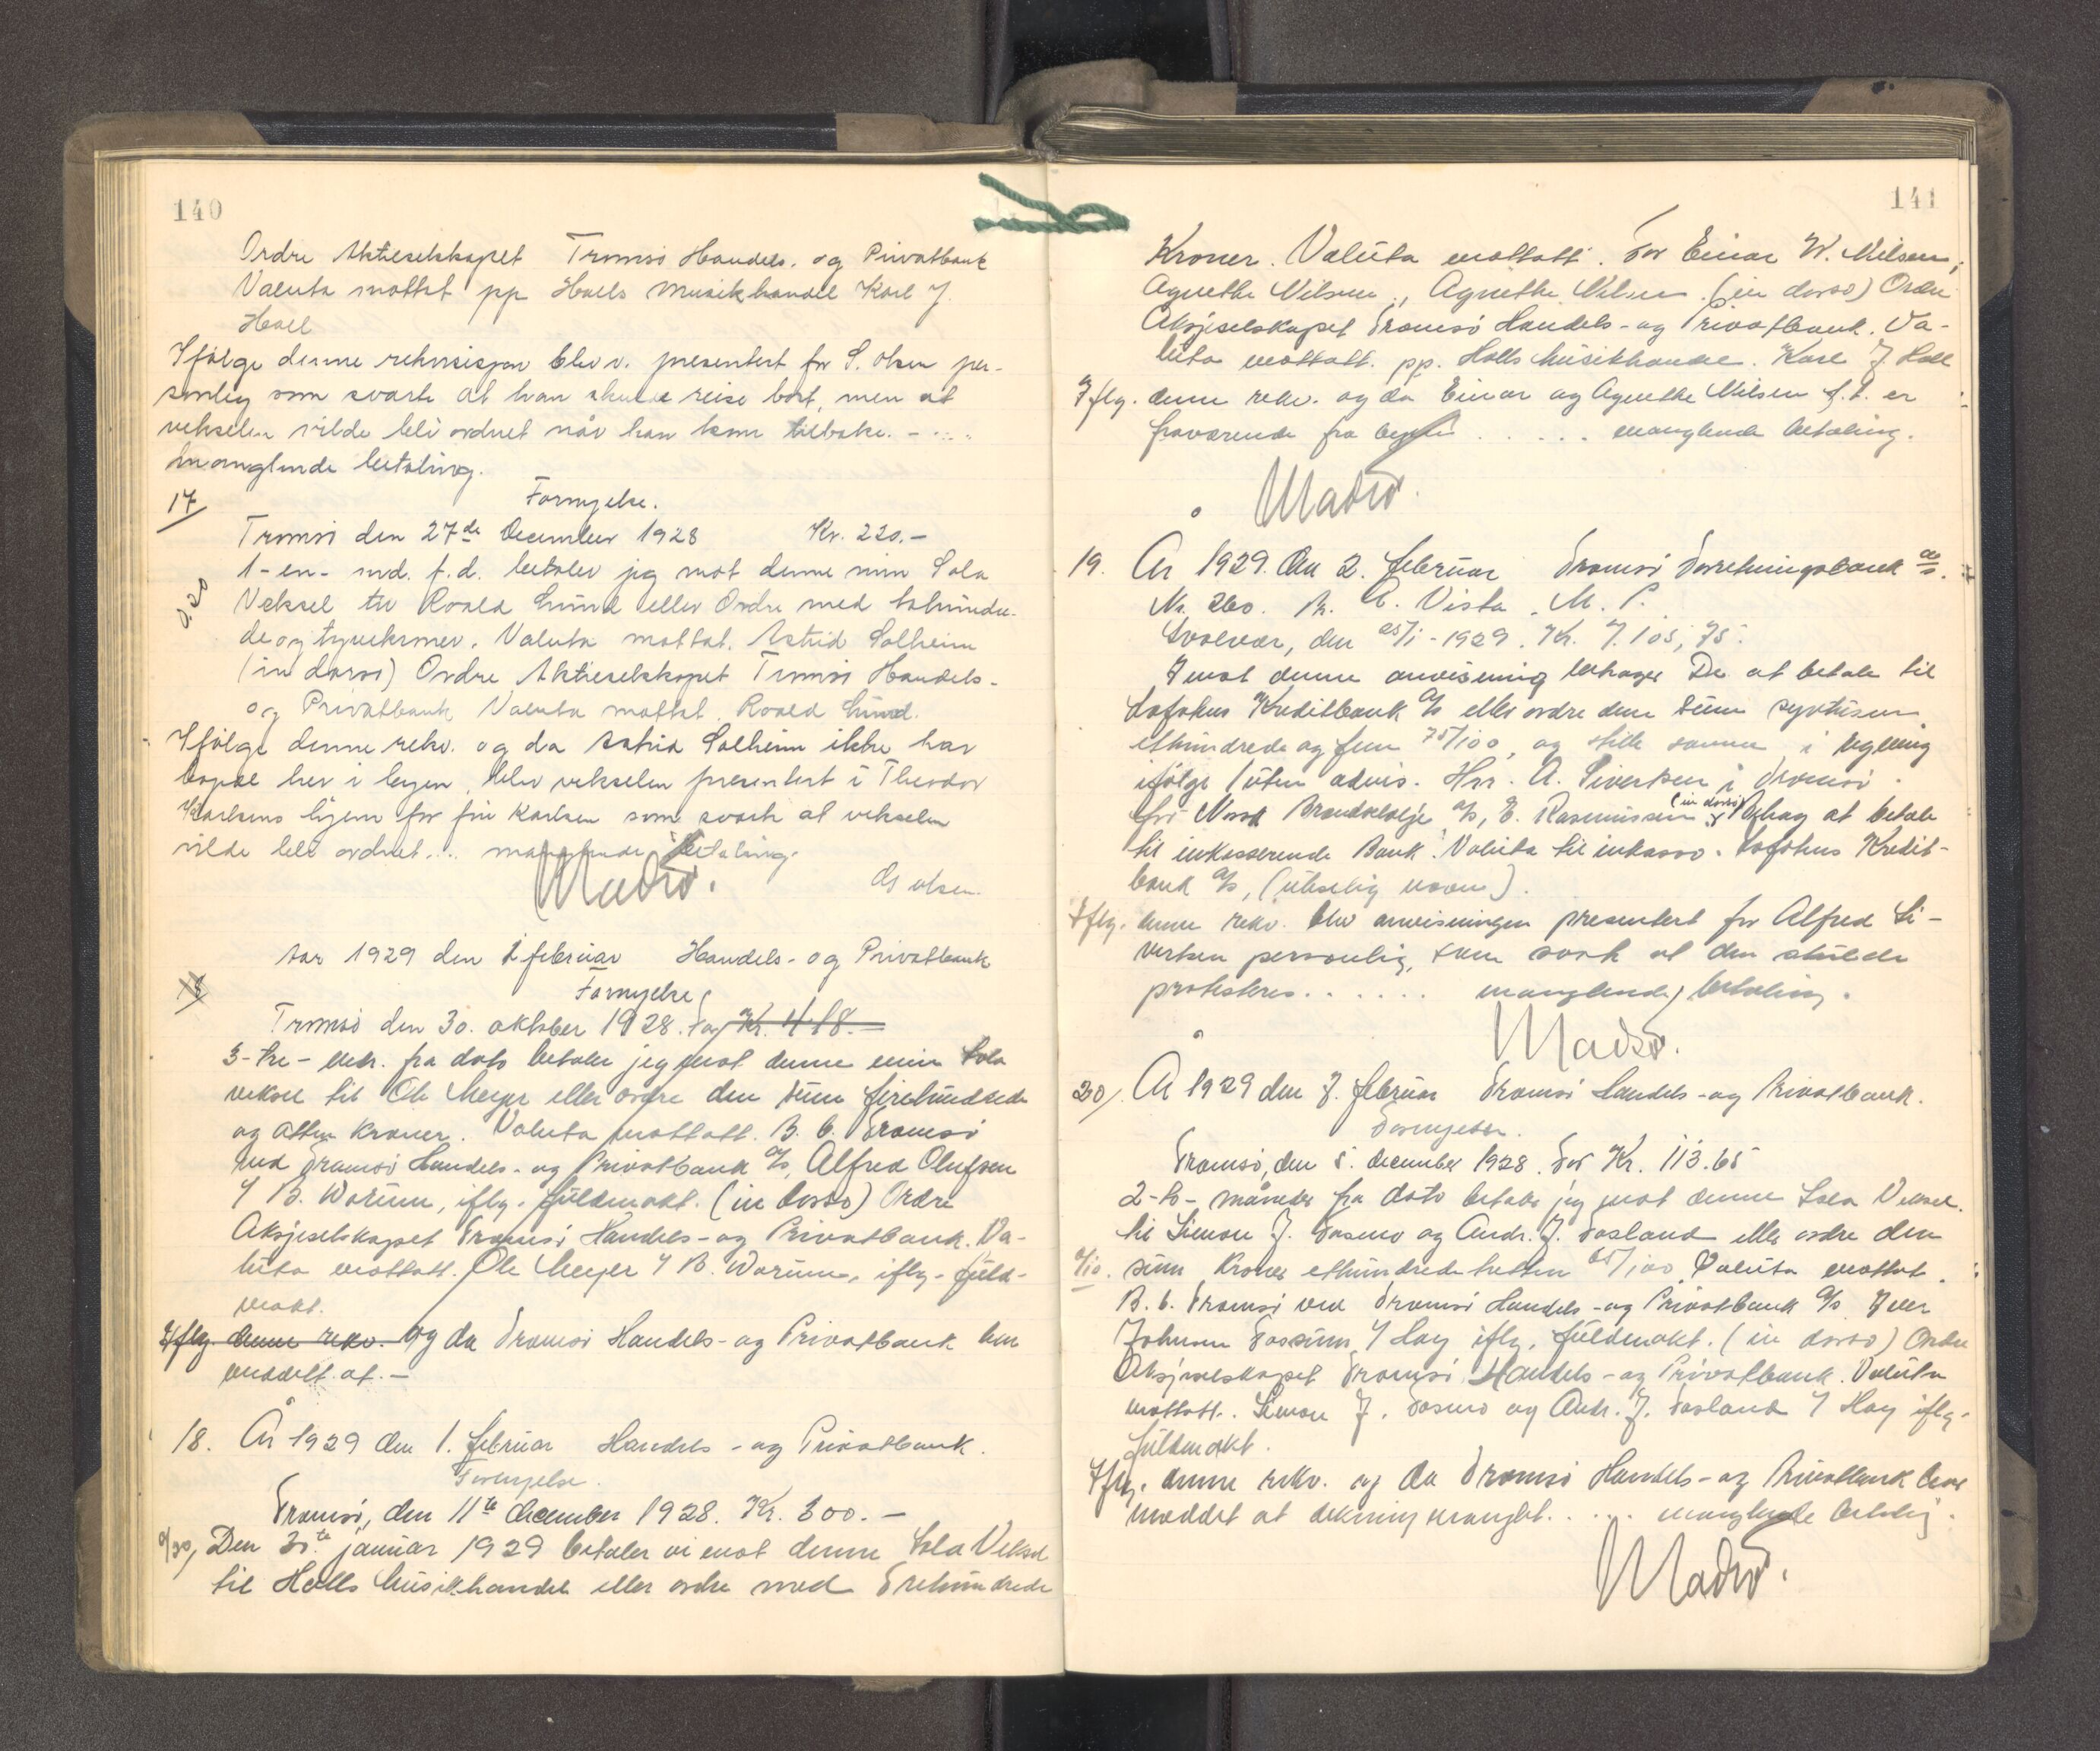 140
Ordre Aktieselskapet Tromsö Handels- og Privatbank
Valuta mottat pp Halls Musikhandel Karl J.
Hall
Ifölge denne rekvisisjon blev v. presentert for S. Olsen per-
sonlig som svarte at han skulde reise bort, men at
vekselen vilde bli ordnet når han kom tilbake. - ....
manglende betaling.
17
Fornyelse.
Tromsö den 27de December 1928 Kr. 220.-
1-en- md. f.d. betaler jeg mot denne min Sola
0,20
Veksel til Roald Lund eller Ordre med tohundre-
de og tyvekroner. Valuta mottat. Astrid Solheim
(in dorso) Ordre Aktieselskapet Tromsö Handels-
og Privatbank Valuta mottat. Roald Lund.
Ifölge denne rekv. og da Astrid Solheim ikke har
bopæl her i byen, blev vekselen presentert i Theodor
Karlsens hjem for fru Karlsen som svarte at vekselen
vilde bli ordnet... manglende betaling.
Madsö. Olsen
Aar 1929 den 1 februar Handels- og Privatbank
18
Fornyelse
Tromsö den 30. oktober 1928. For Kr. 418.-
3-tre- mdr. fra dato betaler jeg mot denne min Sola
veksel til Ole Meyer eller ordre den sum firehundrede
og atten kroner. Valuta mottatt. B. b. Tromsö
ved Tromsö Handels- og Privatbank A/S, Alfred Olufsen
B. Worum, iflg. fuldmakt. (in dorso) Ordre
Aksjeselskapet Tromsö Handels- og Privatbank. Va-
luta mottatt. Ole Meyer B. Worum, iflg. fuld-
makt.
Iflg. denne rekv. Og da Tromsö Handels- og Privatbank har
meddelt at.-
18. År 1929 den 1. februar Handels- og Privatbank.
Fornyelse.
Tromsö, den 11te December 1928. Kr. 300.-
Den 30.te januar 1929 betaler vi mot denne Sola Veksel
til Halls Musikhandel eller ordre med Trehundrede
141
Kroner. Valuta mottatt. For Einar W. Nilsen,
Agnethe Nilsen, Agnethe Nilsen. (in dorso) Ordre
Aksjeselskapet Tromsö Handels- og Privatbank. Va-
luta mottatt. pp. Halls Musikhandel. Karl J Hall
Iflg. denne rekv. og da Einar og Agnethe Nilsen f.t. er
fraværende fra byen ..... manglende betaling.
Madsö.
19. År 1929. Den 2. februar Tromsö Forretningsbank A/S.
No. 260. A. Vista. M. P.
Svolvær, den 25/1-1929. Kr. 7.105,75.
I mot denne anvisning behager De at betale til
Lofotens Kreditbank A/S eller ordre den sum syvtusen
ethundrede og fem 75/100, og stille samme i regning
ifölge / uten advis. Hrr. A. Sivertsen i Tromsö.
for Norsk Brændselolje A/S, E. Rasmussen (in dorso) Behag at betale
til inkasserende Bank. Valuta til inkasso. Lofotens Kredit-
bank A/S, (utydelig navn).
Iflg. denne rekv. blev anvisningen presentert for Alfred Si-
vertsen personlig, som svarte at den skulde
protesteres...... manglende betaling.
Madsö.
20/. År 1929 den 7. februar Tromsö Handels- og Privatbank.
Fornyelse.
Tromsö, den 5. december 1928. For Kr. 113.65
2-to- måneder fra dato betaler jeg mot denne Sola Veksel
til Simon J. Fosmo og Andr. J. Fosland eller ordre den
0/10. sum Kroner ethundredetretten 65/100 Valuta mottat.
B. b. Tromsö ved Tromsö Handels- og Privatbank A/S
Johnsen Hay iflg. fuldmakt. (in dorso) Ordre
Aksjeselskapet Tromsö Handels- og Privatbank. Valuta
mottatt. Simon J. Fosmo og Andr. J. Fosland Hay iflg.
fuldmakt.
Iflg. denne rekv. og da Tromsö Handels- og Privatbank har
meddelt at dekning manglet..... manglende betaling.
Madsö.